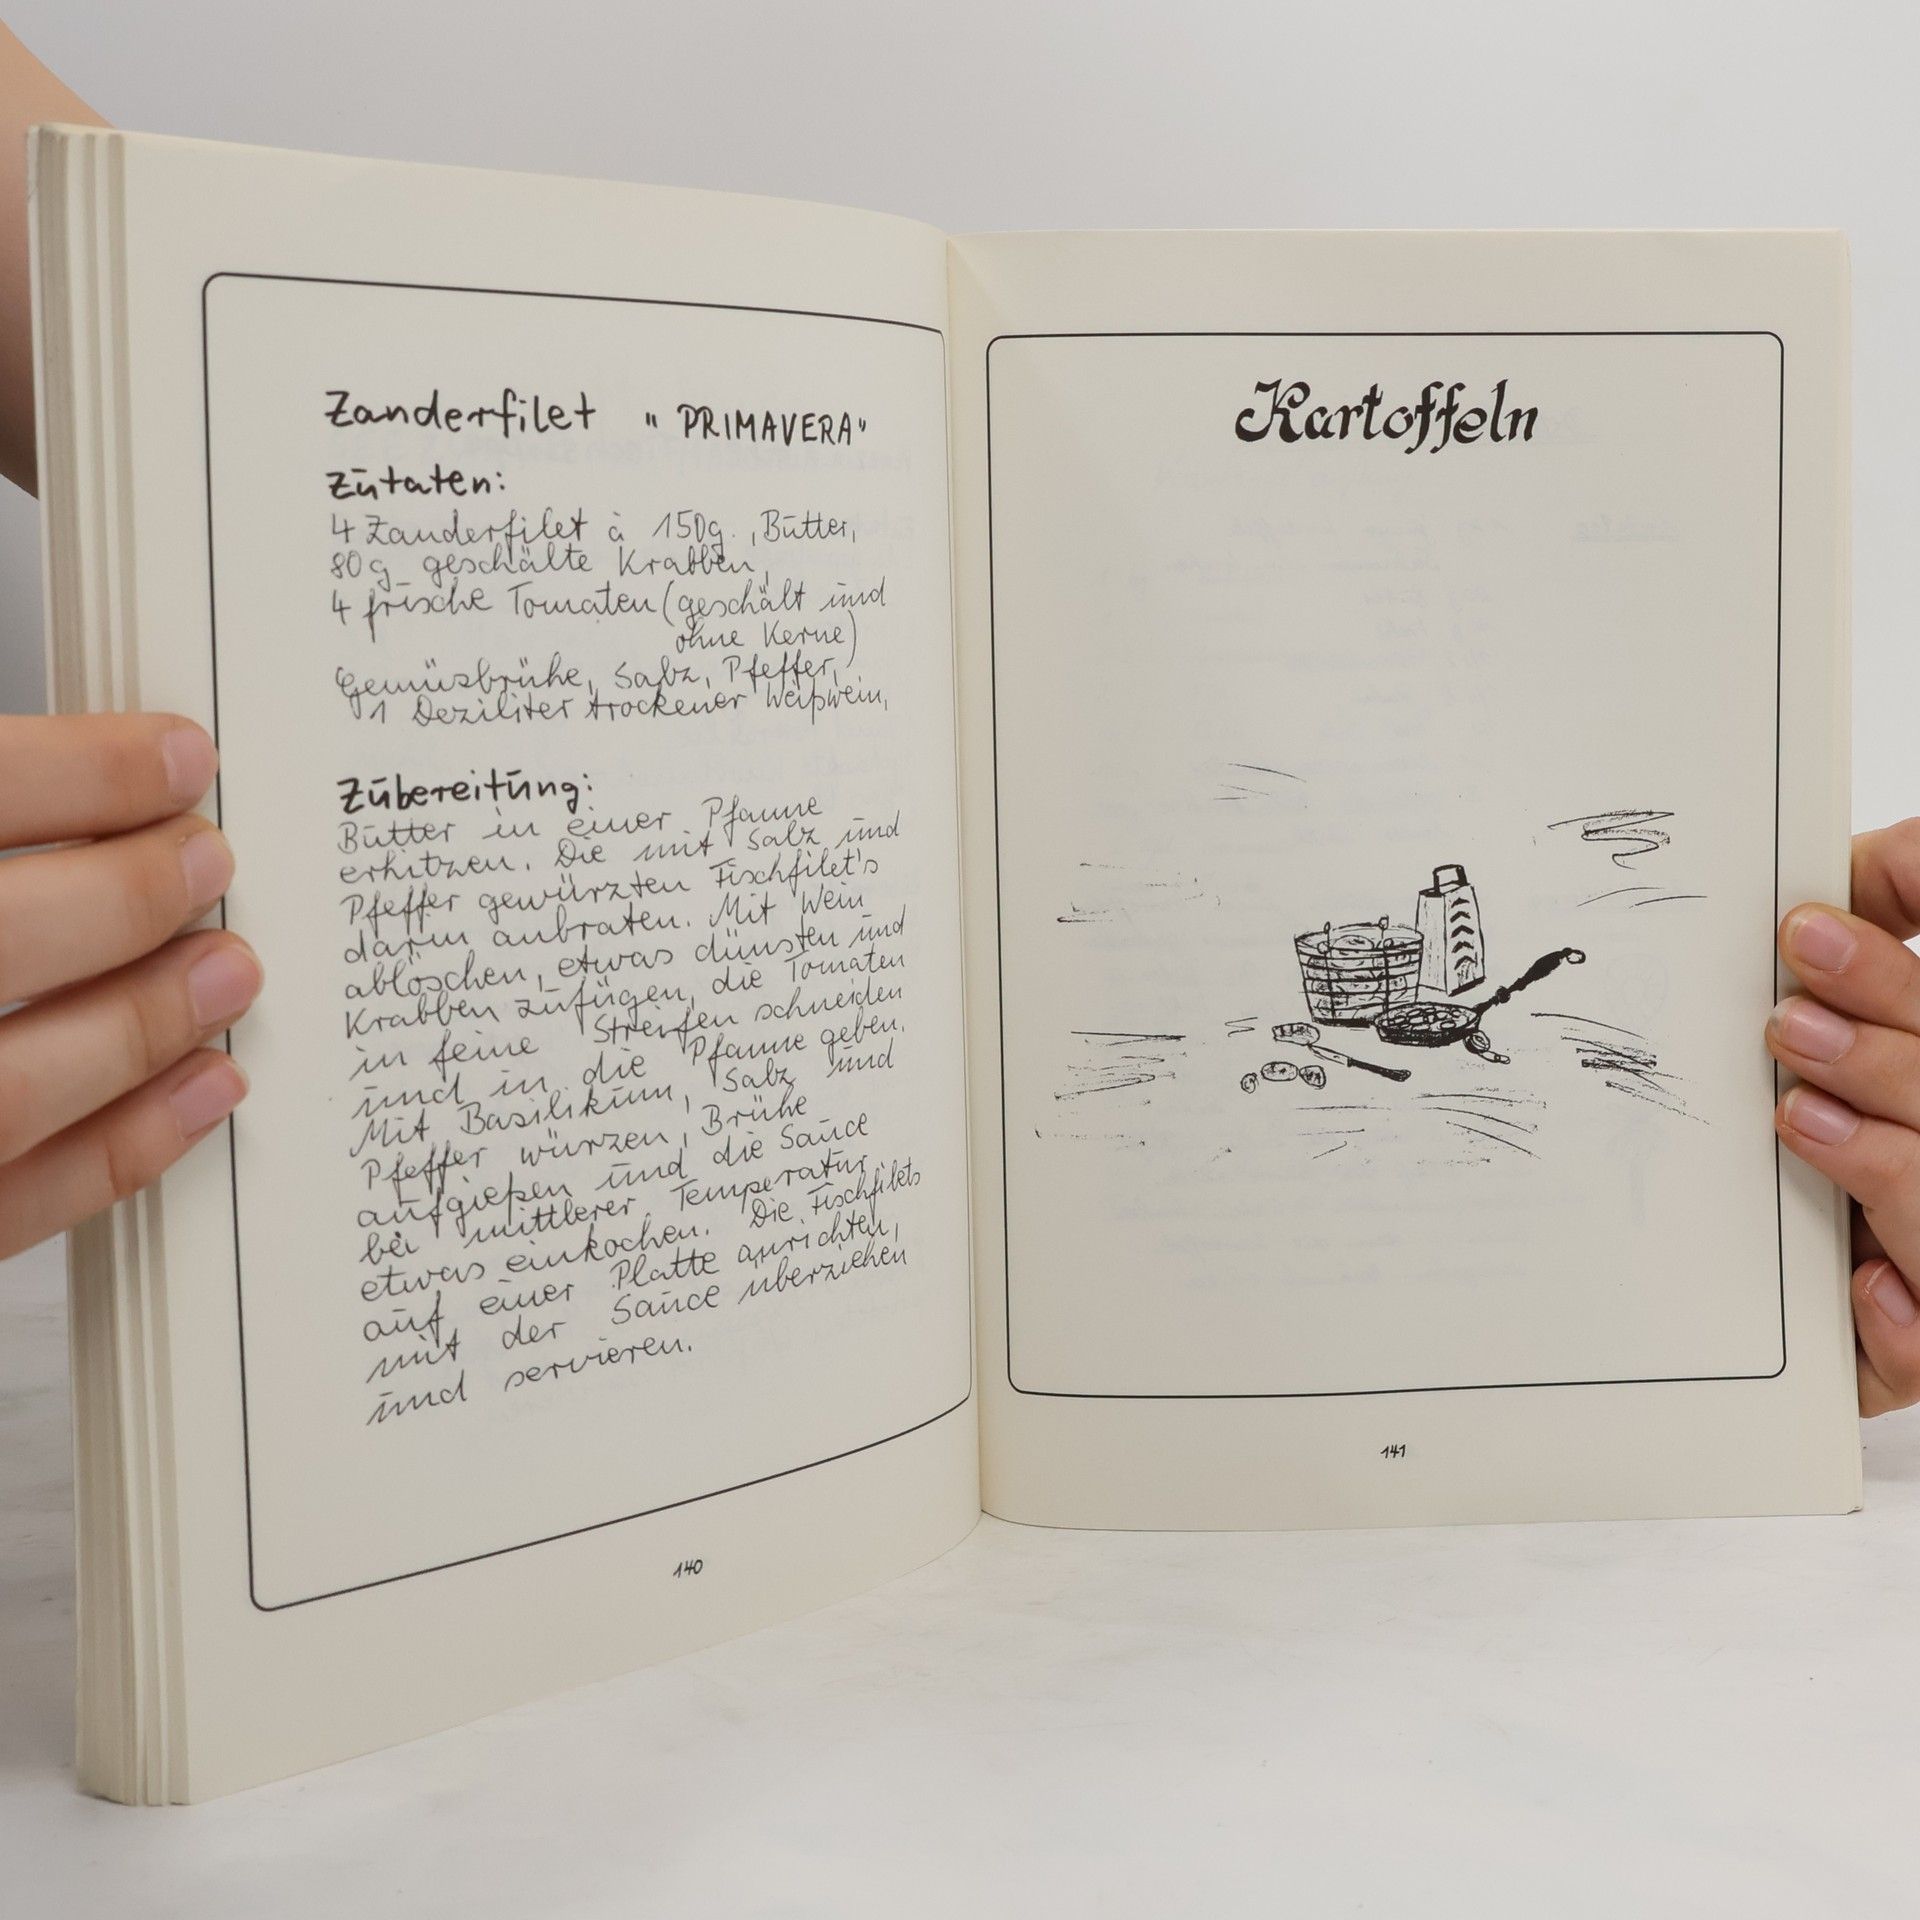 Zanderfilet "PRIMAVERA"
Zutaten:
4 Zanderfilet à 150g., Butter,
80g geschälte Krabben,
4 frische Tomaten (geschält und
ohne Kerne)
Gemüsbrühe, Salz, Pfeffer,
1 Deziliter trockener Weißwein,
Zubereitung:
Butter in einer Pfanne
erhitzen. Die mit Salz und
Pfeffer gewürzten Fischfilet's
darin anbraten. Mit Wein
ablöschen, etwas dünsten und
Krabben zufügen, die Tomaten
in feine Streifen schneiden
und in die Pfanne geben.
Mit Basilikum, Salz und
Pfeffer würzen, Brühe
aufgießen und die Sauce
bei mittlerer Temperatur
etwas einkochen. Die Fischfilets
auf einer Platte anrichten,
mit der Sauce überziehen
und servieren.
140
Kartoffeln
141